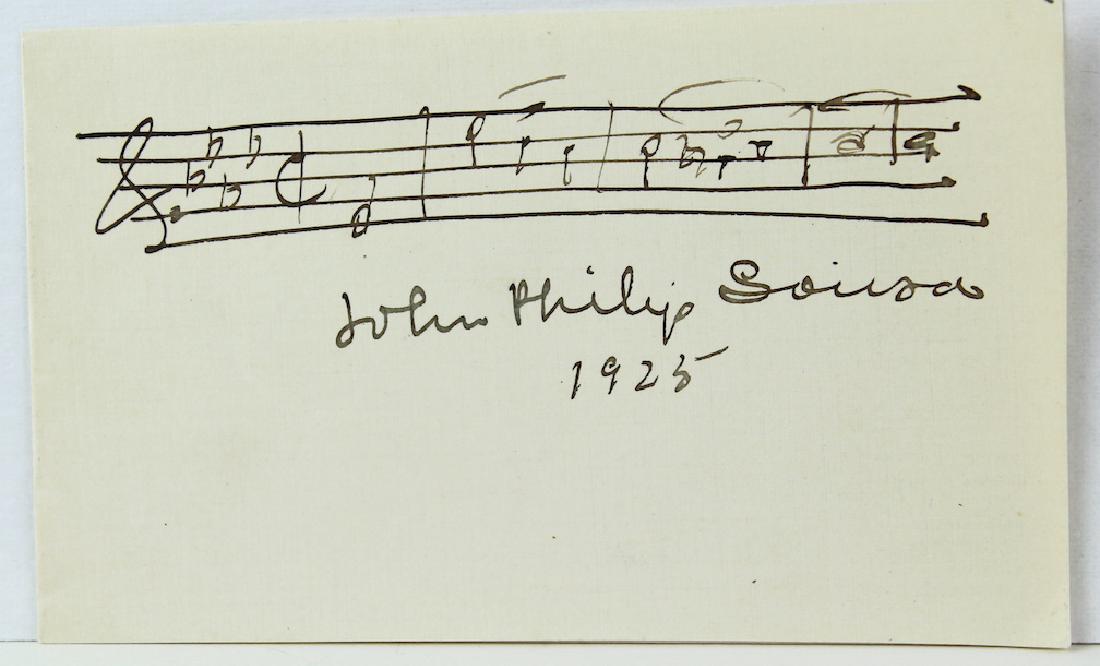 John Philip Sousa
1925